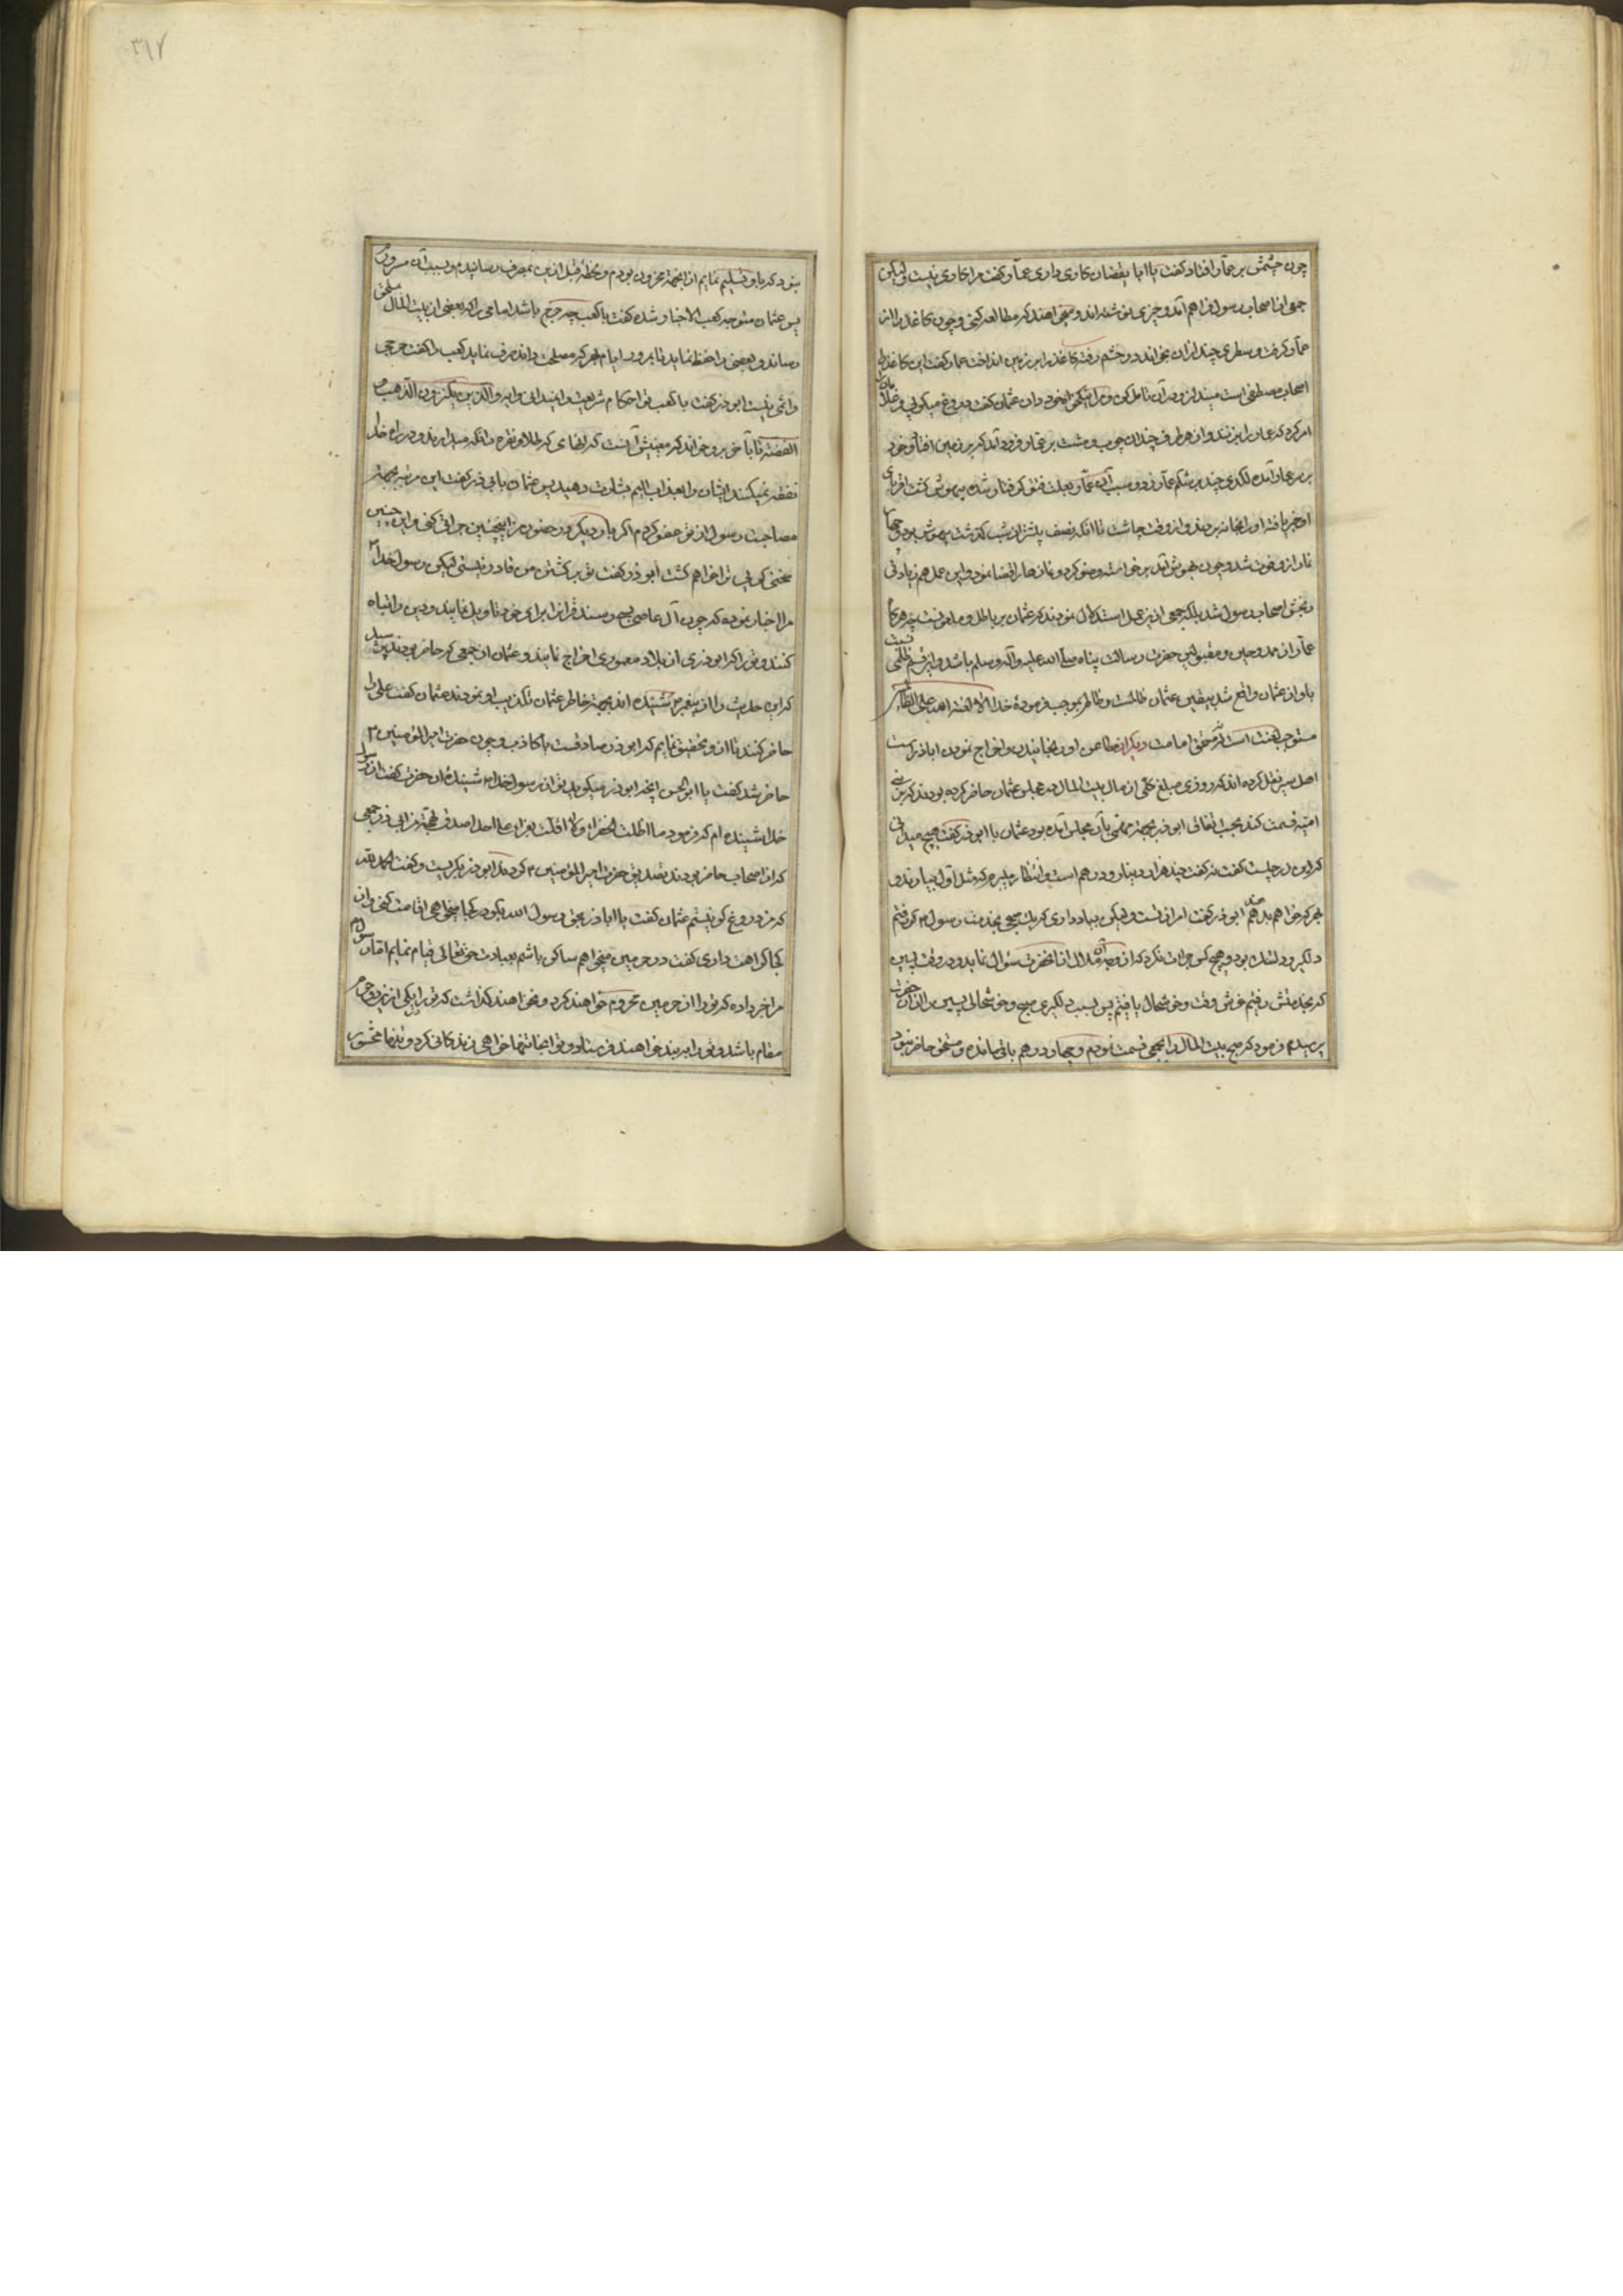 چون چشمش بر عمار افتاد گفت یا ابا یقضان کاری داری عمار گفت مرا کاری نیست لیکن
جمعی از اصحاب رسول فراهم آمده و چیزی نوشته اند و میخواهند که مطالعه کنی و چون کاغذ را از
عمار گرفت و سطری چند از آن بخواند در خشم رفته کاغذ را بر زمین انداخت عمار گفت این کاغذ را
اصحاب مصطفی است مینداز و در آن تامل کن و نیکی بخود دان عثمان گفت دروغ میگویی و غلامان را
امر کرد که عمار را بزنند و از هر طرف چندان چوب و مشت بر عمار فرود آمد که بر زمین افتاد و خود
بر سر عمار آمده لگدی چند بر شکم عمار زد و بسبب آن عمار بعلت فتق گرفتار شده بیهوش گشت اقربای
او خبر یافته او را بخانه بردند و از وقت چاشت تا آنکه نصف بیشتر از شب گذشت بیهوش بود و چهار
نماز از او فوت شد و چون بهوش آمد برخواسته وضو کرد و نمازها را قضا نمود و این عمل هم زیادتی
رنجش اصحاب رسول شد بلکه جمعی از این عمل استدلال نمودند که عثمان بر باطل و ملعونست چه هرگاه
عمار از ممدوحین و مقبولین حضرت رسالت پناه صلی الله علیه وآله وسلم باشد و این قسم ظلمی نسبت
باو از عثمان واقع شد بیقین عثمان ظالمست و ظالم بموجب فرموده خدا الا لعنة الله علی الظالمین
مستوجب لعنت است نه مستحق امامت دیگر از مطاعن او رنجانیدن و اخراج نمودن اباذر است
اهل سیر نقل کرده اند که روزی مبلغ کلی از مال بیت المال در مجلس عثمان حاضر کرده بودند که بر بنی
امیه قسمت کند بحسب اتفاق ابوذر بجهة مهمی بآن مجلس آمده بود عثمان با ابوذر گفت هیچ میدانی
که این زر چیست گفت نه گفت چند هزار دینار و درهم است و انتظار میبرم که مثل اول بیارند و
بهر که خواهم بدهم ابوذر گفت امر از تست ولیکن بیاد داری که یک صبحی بخدمت رسول م که رفتم
دلگیر و دلتنک بود و هیچ کس جرات نکرد که از وجه ملال از آنحضرت سؤال نماید و در وقت پسین
که بخدمتش رفتم خوش وقت و خوشحال یافتم پس بسبب دلگیری صبح و خوشحالی پسین را از آن حضرت
پرسیدم فرمود که صبح بیت المال را بجمعی قسمت نمودم و چهار درهم باقی مانده و مستحق حاضر نبود
نبود که باو تسلیم نمایم از اینجهة محزون بودم و لحظه قبل ازین بمصرف رسانیدم و بسبب آن مسرورم
پس عثمان متوجه کعب الاحبار شده گفت یا کعب چه حرج باشد امامی را که بعضی از بیت المال بمستحق
رساند و بعضی را حفظ نماید تا بمرور ایام بهر که مصلحت داند صرف نماید کعب الاحبار گفت حرجی
واثمی نیست ابوذر گفت یا کعب تو احکام شریعت را نمیدانی و آیه والذین یکنزون الذهب و
الفضة تا بآخر برو خواند که معنیش آنست که آنهائی که طلا و نقره را نگه میدارند و در راه خدا
نفقه نمیکنند ایشان را بعذاب الیم بشارت دهید پس عثمان باابی ذر گفت این مرتبه بجهة
مصاحبت رسول از تو عفو کردم اگر بار دیگر در حضور من اینچنین جراتی کنی و این چنین
سخنی گویی ترا خواهم کشت ابوذر گفت تو بر کشتن من قادر نیستی لیکن رسول خدا م
مرا اخبار نموده که چون آل عاصی بسی رسند قرآنرا برای خود تاویل نمایند و دین را تباه
کنند و تورا که ابوذری از بلاد معموره اخراج نمایند و عثمان از جمعی که حاضر بودند پرسید
که این حدیث را از پیغمبر م شنیده اند بجهة خاطر عثمان تکذیب او نمودند عثمان گفت علی را
حاضر کنند تا از او تحقیق نمایم که ابوذر صادقست یا کاذب و چون حضرت امیر المؤمنین م
حاضر شد گفت یا ابو الحسن اینچه ابوذر میگوید تو از رسول خدا م شنیده آن حضرت گفت از رسول
خدا شنیده ام که فرمود ما اظلت الخضراء ولا اقلت الغبراء علی احد اصدق لهجة من ابی ذر جمعی
که از اصحاب حاضر بودند تصدیق حضرت امیر المؤمنین م کردند ابوذر بگریست و گفت الحمد لله
که من دروغ گو نیستم عثمان گفت یا اباذر بحق رسول الله بگو در کجا میخواهی اقامت کنی و از
کجا کراهت داری گفت در حرمین میخواهم ساکن باشم بعبادت حق تعالی قیام نمایم اما رسول م
مرا خبر داده که تورا از حرمین محروم خواهند کرد و نخواهند گذاشت که تورا یکی از این دو حرم
مقام باشد و تورا بربذه خواهند فرستاد و تو آنجا تنها خواهی زندگانی کرد و تنها محشور